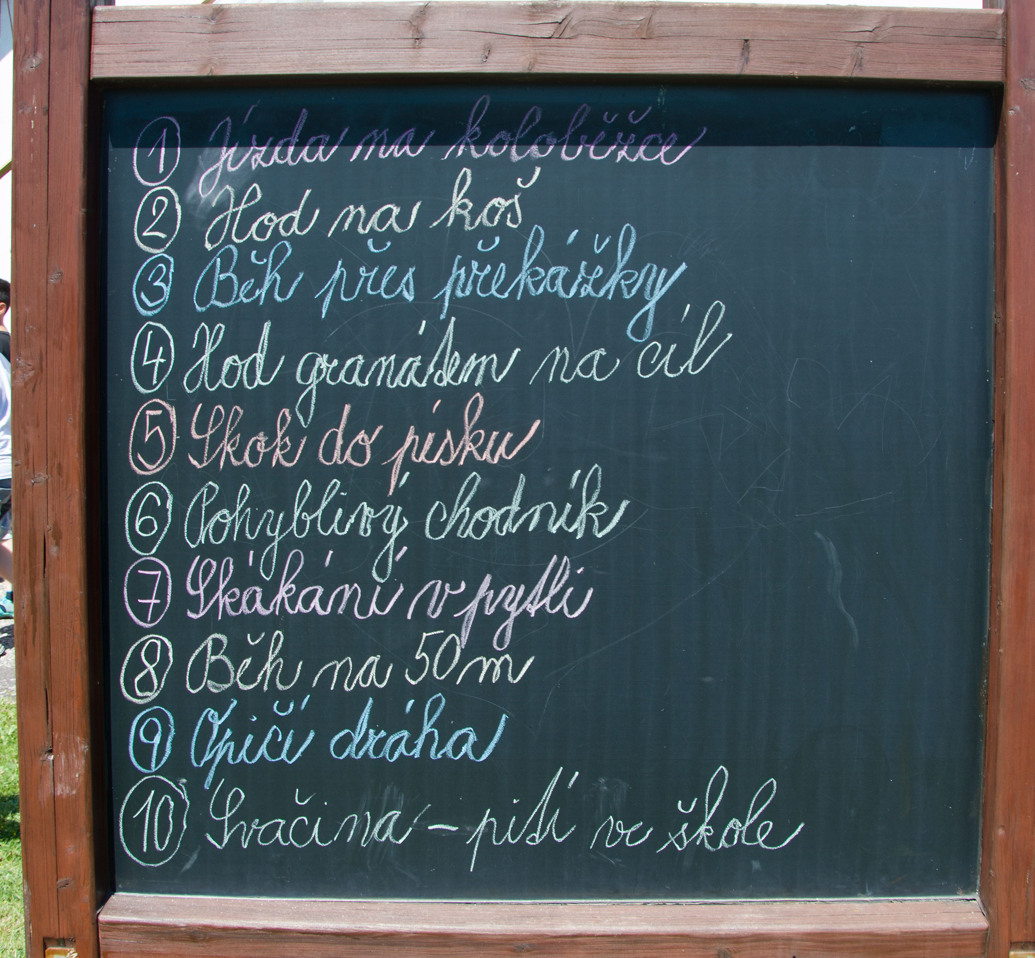 1 Jízda na koloběžce
2 Hod na koš
3 Běh přes překážky
4 Hod granátem na cíl
5 Skok do písku
6 Pohyblivý chodník
7 Skákání v pytli
8 Běh na 50 m
9 Opičí dráha
10 Svačina – pití ve škole